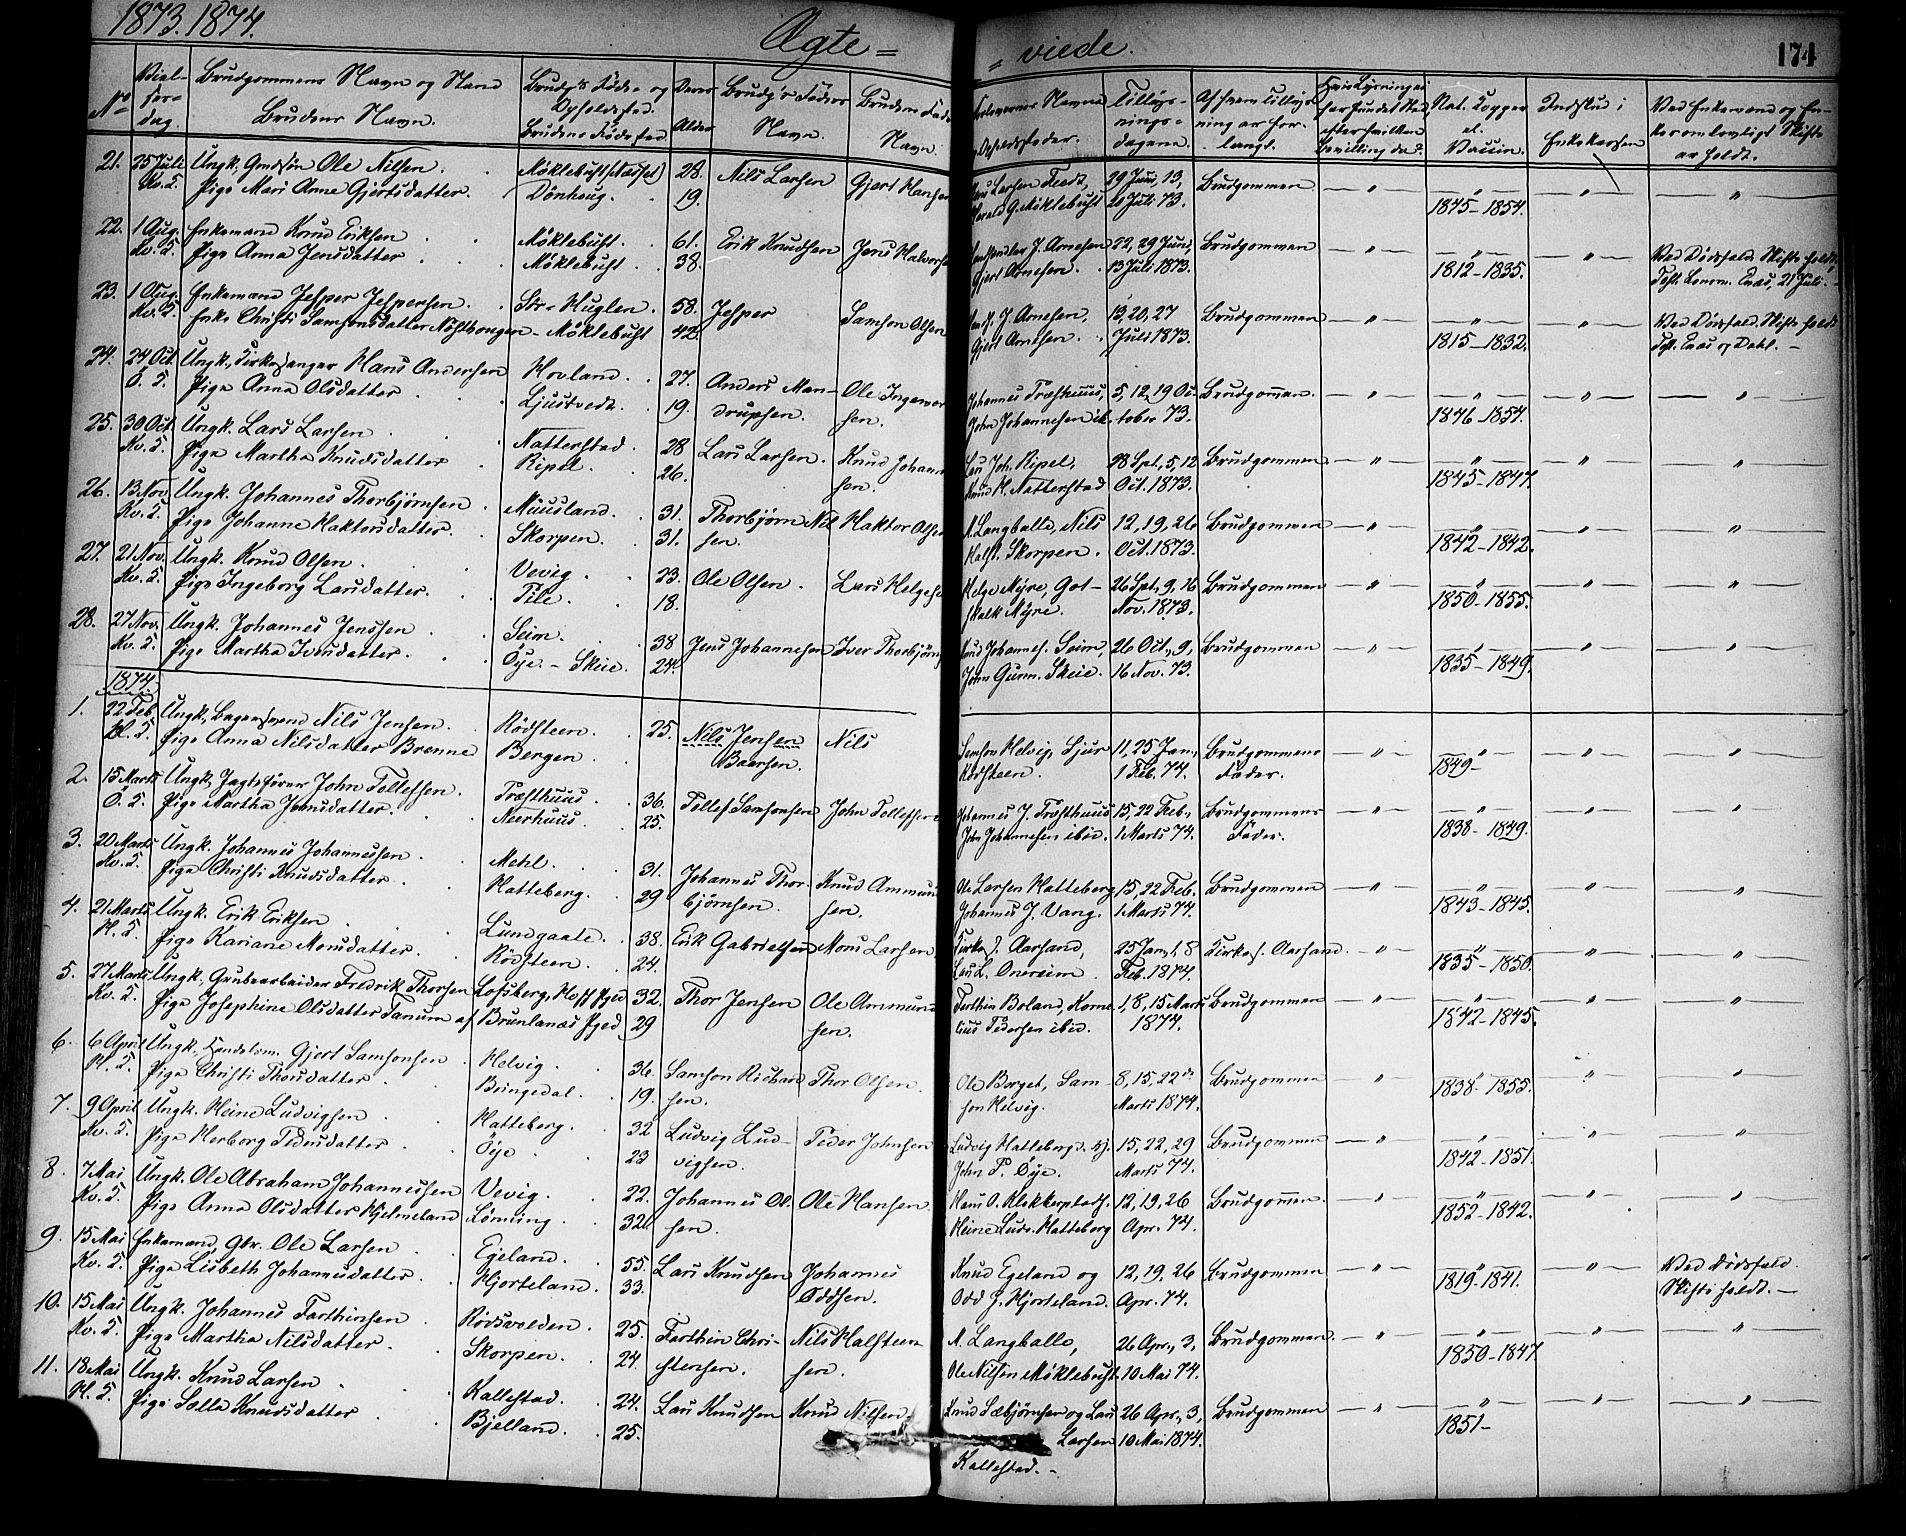 1873. 1874.
Ægte =
= viede.
174
No
Viel-
ses=
dag.
Brudgommens Navn og Stand
Brudens Navn.
Brudg's Føde- og
Opholdssted.
Brudens Fødested
Deres
Alder
Brudg's Faders
Navn.
Brudens Faders
Navn.
Forlovernes Navne
Opholdssteder.
Tillys-
nings=
dagene.
Af hvem Tillys-
ning er for-
langt.
Nat. Kopper
el.
Vaccin.
Indskud i
Enkekassen
Ved Enkemænd og En-
ker om lovligt Skifte
er holdt.
21. 25 Juli Ungk. Gmdsøn Ole Nilsen. Møklebust (Næsset) 28. Nils Larsen Gjert Hansen Larsen Tvedt, 29 Juni, 13, Brudgommen
Kv. S. Pige Mari Anne Gjertsdatter. Dönhoug. 19. Harald G. Møklebust 20 Juli 73. 1845-1854.
22. 1 Aug. Enkemand Knud Eriksen Møklebust. 61. Erik Knudsen Jens Halvorsen J. Arnesen 22, 29 Juni, Brudgommen Ved Dödsfald Skifte holdt
Kv. S. Pige Anna Jensdatter. Møklebust. 38. Gjert Arnesen. 13 Juli 1873. 1812-1835. 21 Juli.
23. 1 Aug. Enkemand Jesper Jespersen. Sör-Huglen. 58. Jesper Samson Olsen J. Arnesen, 13, 20, 27 Brudgommen Ved Dödsfald. Skifte holdt
Kv. S. Enke Christi Samsonsdatter - Møklebust 42. Gjert Arnesen. Juli 1873. 1815-1832.
24. 24 Oct. Ungk. Kirkesanger Hans Andersen Hovland. 27. Anders Man- Ole Ingemor Johannes Træsthuus, 5, 12, 19 Oc- Brudgommen.
Ö. S. Pige Anna Olsdatter Ljustvedt. 19. drupsen. sen. John Johannesen ib. tober 73. 1846-1854.
25. 30 Oct. Ungk. Lars Larsen Natterstad. 28 Lars Larsen. Knud Johann Lars Joh. Ripel, 28 Spt., 5, 12 Brudgommen
Kv. S. Pige Martha Knudsdatter Ripel. 26. sen. Knud H. Natterstad Oct. 1873. 1845-1847.
26. 13 Nov. Ungk. Johannes Thorbjørnsen Muusland. 31. Thorbjørn Nil Haktor Olsen N. Langballe, Nils 12, 19, 26 Brudgommen
Kv. S. Pige Johanne Haktorsdatter. Skorpen. 31. sen. Halst. Skorpen. Oct. 1873. 1842-1842.
27. 21 Nov. Ungk. Knud Olsen. Vevig. 23. Ole Olsen. Lars Helgesen Helge Myre, Got- 26 Spt., 9, 16 Brudgommen
Kv. S. Pige Ingeborg Larsdatter. 18. skalk Myre. Nov. 1873. 1850-1855.
28. 27 Nov. Ungk. Johannes Jenssen Seim. 38 Jens Johannesen Iver Thorbjørns Knud Johannes. Seim, 26 Oct., 9, Brudgommen
Kv. S. Pige Martha Iversdatter. Öye - Skeie. 24. John Gunn. Skeie. 16 Nov. 73. 1835-1849.
1874.
1. 22 Feb. Ungk., Bagersvend Nils Jensen. Rödsteen. 25. Nils Jensen Nils Samson Helvig, Sjur 11, 25 Jan., Brudgommens
H. S. Pige Anna Nilsdatter Brenne Bergen. Baarsen. Rödsteen. 1 Feb. 74. Fader. 1849-
2. 15 Marts Ungk., Jagtefører John Tollefsen. Træsthuus. 36. Tollef Samsonsen John Tollefsen Johannes J. Træsthuus 15, 22 Feb., Brudgommens
Ö. S. Pige Martha Johnsdatter. Neerhuus. 25. John Johannesen ibid. 1 Marts 74. Fader. 1838-1849.
3. 20 Marts Ungk. Johannes Johannessen Mehl. 31. Johannes Thor- Knud Ammund Ole Larsen Hatteberg 15, 22 Feb. Brudgommen
Kv. S. Pige Christi Knudsdatter. Hatteberg. 29 bjørnsen. sen. Johannes J. Vang. 1 Marts 74. 1843-1845.
4. 21 Marts Ungk. Erik Eriksen Lundgaate. 38. Erik Gabrielsen Mons Larsen Kirkes. Aarsand, 25 Jan., 1, 8 Kirkes. Aarsand.
H. S. Pige Kariane Monsdatter. Rödsteen. 24. Lars L. Onereim Feb. 1874. 1835-1850.
5. 27 Marts Ungk., Grubearbeider Fredrik Thorsen Lofsberg, Hoff Pgd 32. Thor Jensen Ole Ammund Torthin Boland, Korne 1, 8, 15 Marts Brudgommen
Kv. S. Pige Josephine Olsdatter Fanum af Brunlanæs Pgd 29 sen. lius Pedersen ibid. 1874. 1842-1845.
6. 6 April Ungk., Handelsm. Gjert Samsonsen Helvig. 36. Samson Rickard Thor Olsen. Ole Berget, Sam- 8, 15, 22de Brudgommen
H. S. Pige Christi Thorsdatter. Bringedal. 19. sen. son Helvig. Marts 1874. 1838-1855.
7. 9 April Ungk. Heine Ludvigsen Hatteberg. 32 Ludvig Lud- Peder Johnsen Ludvig Hatteberg 15, 22, 29 Brudgommen
Kv. S. Pige Herborg Pedersdatter Öye. 23 vigsen. John P. Öye. Marts 74. 1842-1851.
8. 7 Mai Ungk. Ole Abraham Johannessen Vevig. 22. Johannes Ol- Ole Hansen Hans O. Klokkerplads. 12, 19, 26 Brudgommen.
Kv. S. Pige Anna Olsdatter Hjelmeland Lönning. 32. sen. Heine Ludv. Hatteberg Apr. 74. 1852-1842.
9. 15 Mai Enkemand, Gbr. Ole Larsen Egeland. 55. Lars Knudsen Johannes Knud Egeland og 12, 19, 26 Brudgommen Ved Dödsfald.
Kv. S. Pige Lisbeth Johannesdatter. Hjorteland. 33. Oddsen. Odd J. Hjorteland. Apr. 74. 1819-1841. Skifte holdt. -
10. 15 Mai Ungk. Johannes Torthinsen Rödsvolden. 25. Torthin Chri- Nils Halsteen- N. Langballe, 26 Apr., 3, Brudgommen.
Kv. S. Pige Martha Nilsdatter. Skorpen. 24. stensen. sen. Ole Nilsen Møklebust 10 Mai 74. 1850-1847
11. 18 Mai Ungk. Knud Larsen Kallestad. 24. Lars Knudsen Knud Nilsen. Knud Sæbjørnsen og Lars 26 Apr., 3, Brudgommen
H. S. Pige Sella Knudsdatter Bjelland. 25. Larsen 10 Mai 1874. 1851-
Kallestad. -